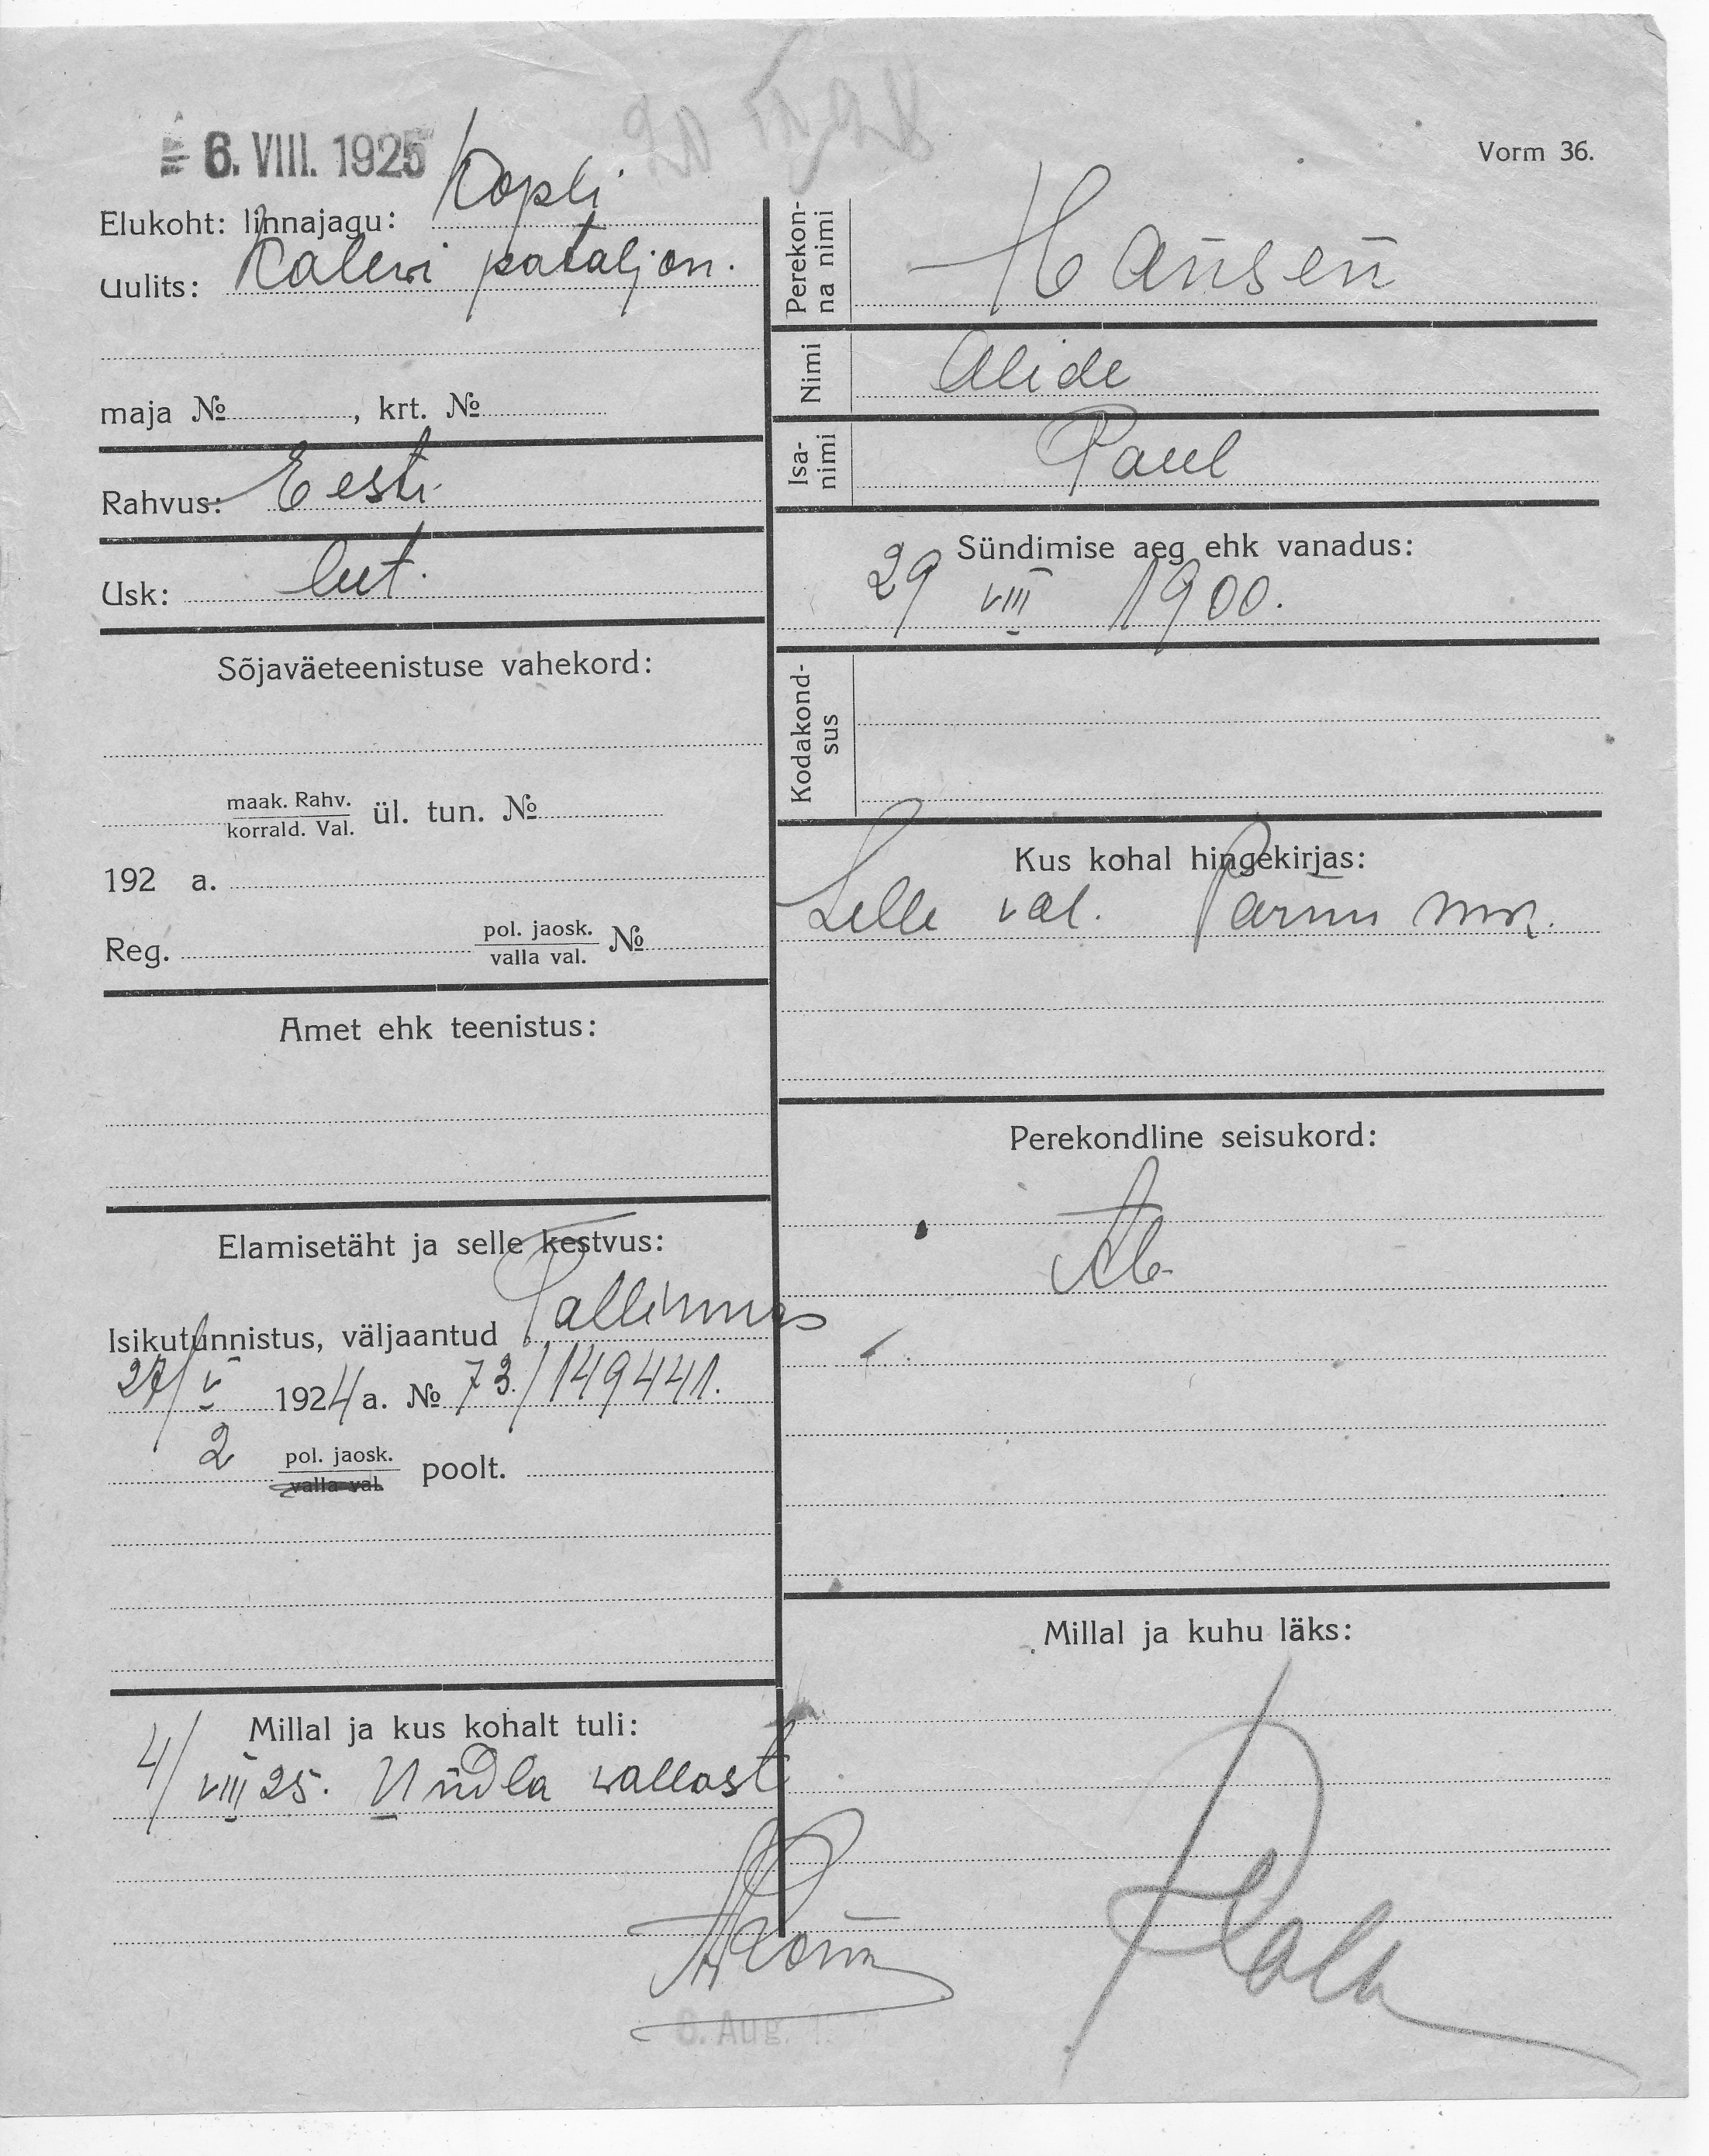 6. VIII. 1925
Vorm 36.
Elukoht: linnajagu: Kopli
Uulits: Kalewi pataljon.
maja № , krt. №
Rahvus: Eesti
Usk: lut.
Sõjaväeteenistuse vahekord:
maak. Rahv.
korrald. Val. ül. tun. №
192 a.
Reg. pol. jaosk. №
valla val.
Amet ehk teenistus:
Elamisetäht ja selle kestvus:
Isikutunnistus, väljaantud Tallinnas
27/V 1924 a. № 73./149441.
2 pol. jaosk. poolt.
valla val.
Millal ja kus kohalt tuli:
4/VIII 25. Undla wallast
Perekon-
na nimi Hansen
Nimi Alide
Isa-
nimi Paul
Sündimise aeg ehk vanadus:
29 VIII 1900.
Kodakond-
sus
Kus kohal hingekirjas:
Lelle val. Pärnu mk.
Perekondline seisukord:
Ab.
Millal ja kuhu läks:
6. Aug.